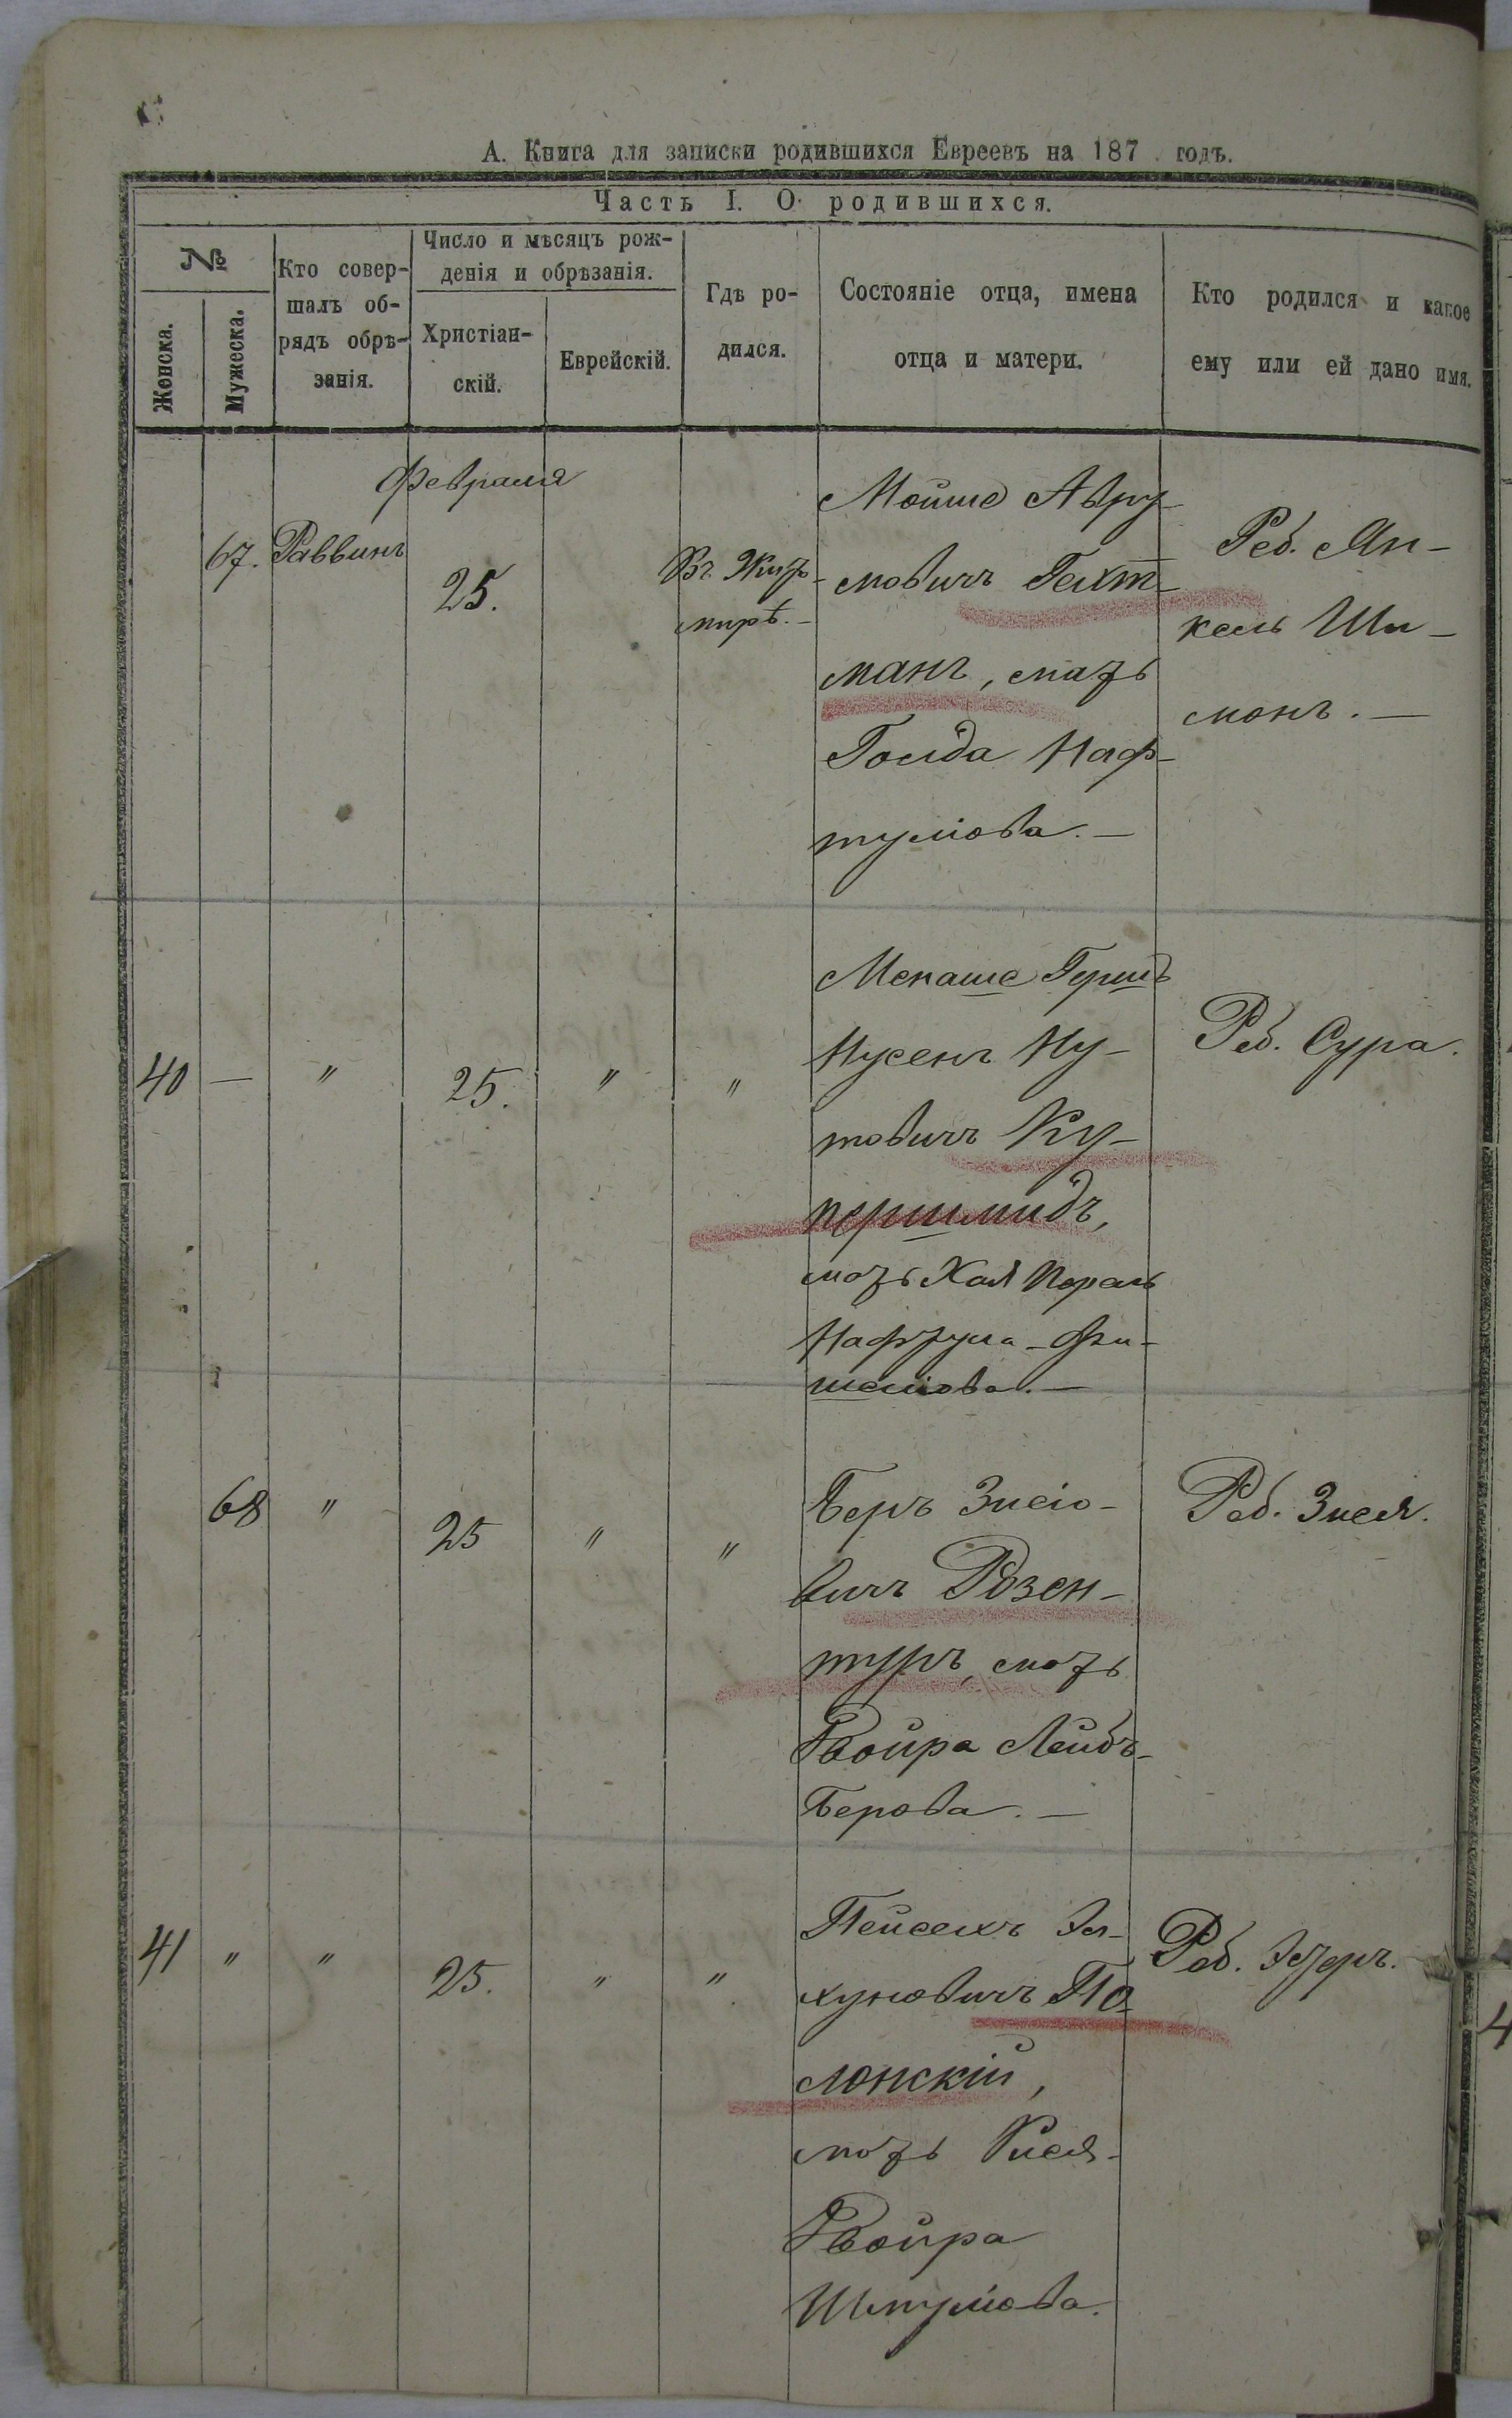 А. Книга для записки родившихся Евреевъ на 187 годъ.
Часть I. О родившихся.
№
Женска.
Мужеска.
Кто совер-
шалъ об-
рядъ обрѣ-
занія.
Число и мѣсяцъ рож-
денія и обрѣзанія.
Христіан-
скій.
Еврейскій.
Гдѣ ро-
дился.
Состояніе отца, имена
отца и матери.
Кто родился и какое
ему или ей дано имя.
Февраля
67. Раввинъ
25.
Въ Жито-
мирѣ.-
Мойше Авру-
мовичъ Гехт-
манъ, мать
Гольда Наф-
тулiова.-
Реб. Ян-
кель Ши-
монъ.-
40 — " 25. " "
Менаше Гершъ
Нусенъ Ну-
товичъ Ку-
першмидъ,
мать Хая Перль
Нафтула-Фи-
шелiова.-
Реб. Сура.
68 " 25 " "
Беръ Зисiо-
вичъ Розен-
туръ, мать
Двойра Лейбъ-
Берова.-
Реб. Зисля.
41 " " 25. " "
Пейсехъ Эл-
хуновичъ По-
лонскiй,
мать Рися-
Двойра
Шмулiова.
Реб. Эстеръ.
4